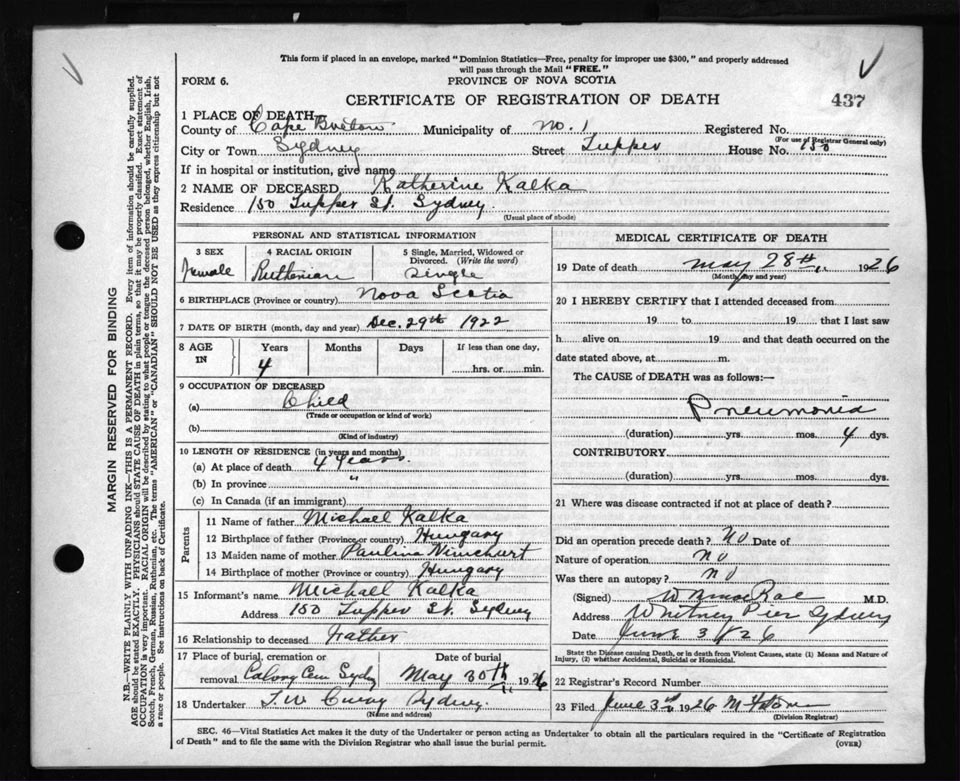 This form if placed in an envelope, marked "Dominion Statistics—Free, penalty for improper use $300," and properly addressed
will pass through the Mail "FREE."
FORM 6.
PROVINCE OF NOVA SCOTIA
CERTIFICATE OF REGISTRATION OF DEATH
437
1 PLACE OF DEATH
County of Cape Breton Municipality of No. 1 Registered No.
(For use of Registrar General only)
City or Town Sydney Street Tupper House No. 150
If in hospital or institution, give name
2 NAME OF DECEASED Katherine Kalka
Residence 150 Tupper St. Sydney.
(Usual place of abode)
PERSONAL AND STATISTICAL INFORMATION
3 SEX 4 RACIAL ORIGIN 5 Single, Married, Widowed or Divorced. (Write the word)
Female Ruthenian Single
6 BIRTHPLACE (Province or country) Nova Scotia
7 DATE OF BIRTH (month, day and year) Dec. 29th 1922
8 AGE IN Years Months Days If less than one day,
4 hrs. or min.
9 OCCUPATION OF DECEASED
(a) Child
(Trade or occupation or kind of work)
(b)
(Kind of industry)
10 LENGTH OF RESIDENCE (in years and months)
(a) At place of death 4 years.
(b) In province "
(c) In Canada (if an immigrant)
Parents
11 Name of father Michael Kalka
12 Birthplace of father (Province or country) Hungary
13 Maiden name of mother Paulina
14 Birthplace of mother (Province or country) Hungary
15 Informant's name Michael Kalka
Address 150 Tupper St. Sydney
16 Relationship to deceased Father
17 Place of burial, cremation or removal Calvory Cem Sydn Date of burial May 30th 1926
18 Undertaker T. W Curry Sydney.
(Name and address)
MEDICAL CERTIFICATE OF DEATH
19 Date of death May 28th 1926
(Month, day and year)
20 I HEREBY CERTIFY that I attended deceased from
19 to 19 that I last saw
h alive on 19 and that death occurred on the
date stated above, at m.
The CAUSE of DEATH was as follows:—
Pneumonia
(duration) yrs. mos. 4 dys.
CONTRIBUTORY
(duration) yrs. mos. dys.
21 Where was disease contracted if not at place of death?
Did an operation precede death? No Date of
Nature of operation No
Was there an autopsy? No
(Signed) W MacRae M.D.
Address Whitney Pier Sydney
Date June 3/26
State the Disease causing Death, or in death from Violent Causes, state (1) Means and Nature of
Injury, (2) whether Accidental, Suicidal or Homicidal.
22 Registrar's Record Number
23 Filed June 3rd 1926
(Division Registrar)
SEC. 46—Vital Statistics Act makes it the duty of the Undertaker or person acting as Undertaker to obtain all the particulars required in the "Certificate of Registration
of Death" and to file the same with the Division Registrar who shall issue the burial permit.
(OVER)
MARGIN RESERVED FOR BINDING
N.B.—WRITE PLAINLY WITH UNFADING INK—THIS IS A PERMANENT RECORD. Every item of information should be carefully supplied.
AGE should be stated EXACTLY. PHYSICIANS should STATE CAUSE OF DEATH in plain terms, so that it may be properly classified. Exact statement of
OCCUPATION is very important. RACIAL ORIGIN will be described by stating to what people or tongue the deceased person belonged, whether English, Irish,
Scotch, French, German, Russian, Ruthenian, etc. The terms "AMERICAN" or "CANADIAN" SHOULD NOT BE USED as they express citizenship but not
a race or people. See instructions on back of Certificate.